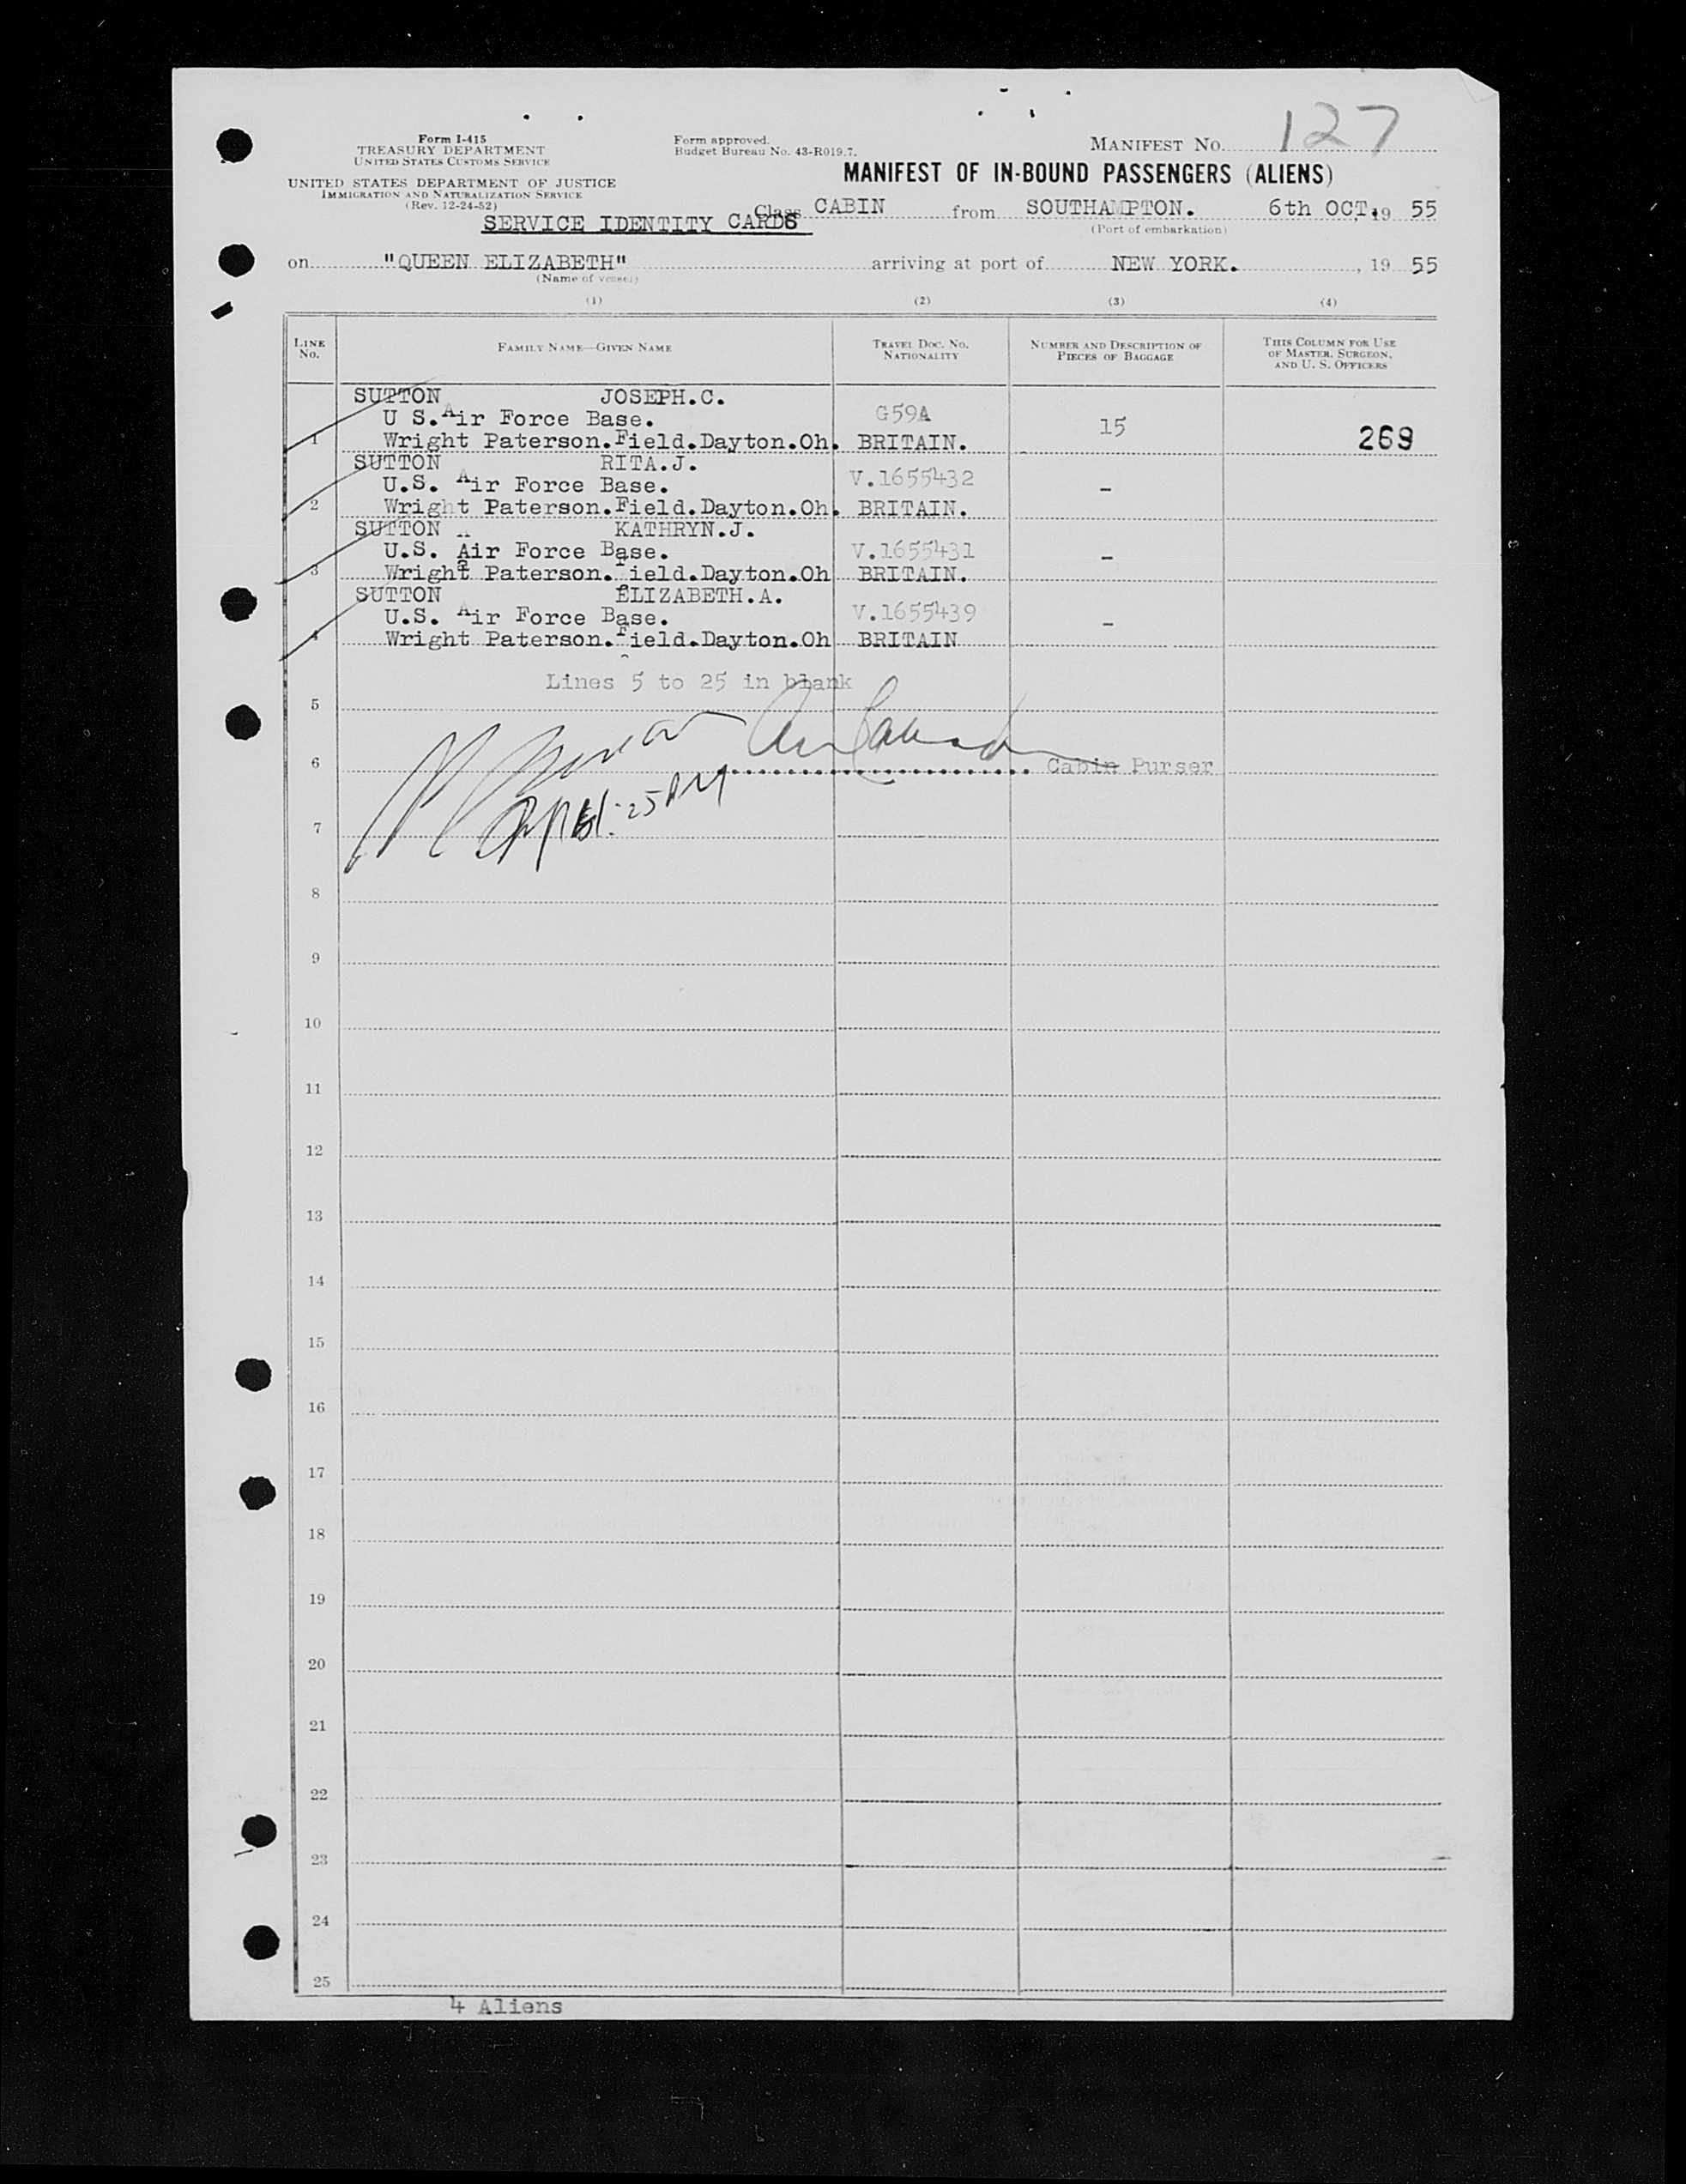 Form I-415
TREASURY DEPARTMENT
UNITED STATES CUSTOMS SERVICE
UNITED STATES DEPARTMENT OF JUSTICE
IMMIGRATION AND NATURALIZATION SERVICE
(Rev. 12-24-52)
Form approved.
Budget Bureau No. 43-R019.7.
MANIFEST NO. 127
MANIFEST OF IN-BOUND PASSENGERS (ALIENS)
SERVICE IDENTITY CARDS
Class CABIN from SOUTHAMPTON. 6th OCT. 19 55
(Port of embarkation)
on "QUEEN ELIZABETH" arriving at port of NEW YORK. , 19 55
(Name of vessel)
(1) (2) (3) (4)
LINE NO. FAMILY NAME—GIVEN NAME TRAVEL DOC. NO. NATIONALITY NUMBER AND DESCRIPTION OF PIECES OF BAGGAGE THIS COLUMN FOR USE OF MASTER, SURGEON, AND U. S. OFFICERS
SUTTON JOSEPH.C.
U S.Air Force Base. G59A 15
1 Wright Paterson.Field.Dayton.Oh. BRITAIN. 269
SUTTON RITA.J.
U.S. Air Force Base. V.1655432 -
2 Wright Paterson.Field.Dayton.Oh. BRITAIN.
SUTTON KATHRYN.J.
U.S. Air Force Base. V.1655431 -
3 Wright Paterson.Field.Dayton.Oh BRITAIN.
SUTTON ELIZABETH.A.
U.S. Air Force Base. V.1655439 -
4 Wright Paterson.Field.Dayton.Oh BRITAIN
Lines 5 to 25 in blank
5
6 Cabin Purser
7
8
9
10
11
12
13
14
15
16
17
18
19
20
21
22
23
24
25
4 Aliens